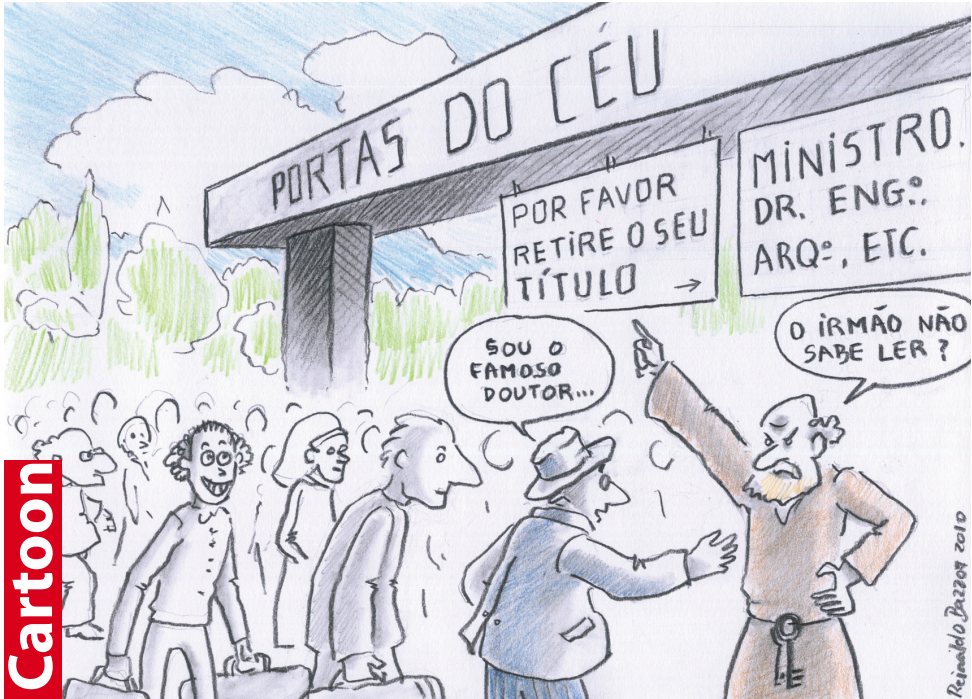 PORTAS DO CÉU
POR FAVOR
RETIRE O SEU
TÍTULO →
MINISTRO.
DR. ENGº.,
ARQº, ETC.
SOU O
FAMOSO
DOUTOR...
O IRMÃO NÃO
SABE LER?
Cartoon
Reinaldo Bazzoa 2010